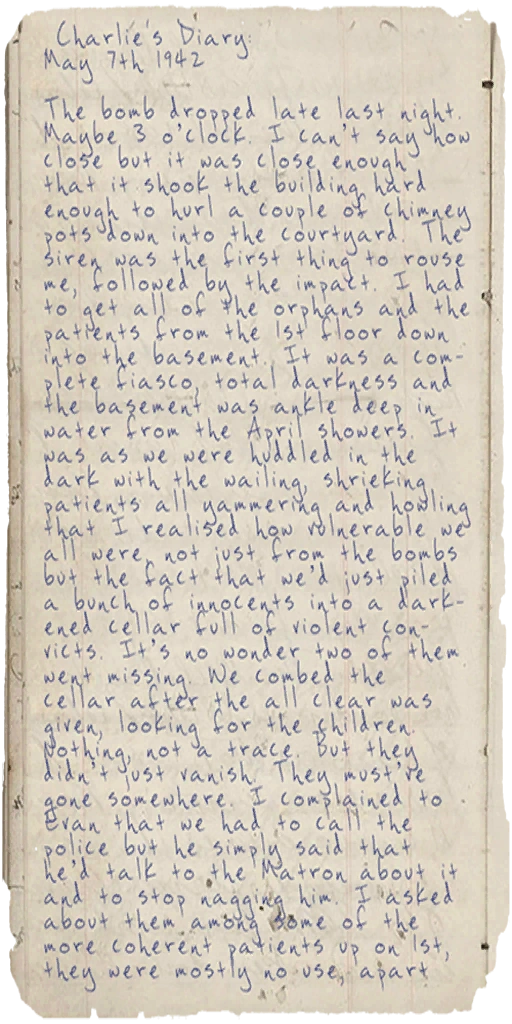 Charlie's Diary:
May 7th 1942
The bomb dropped late last night.
Maybe 3 o'clock. I can't say how
close but it was close enough
that it shook the building hard
enough to hurl a couple of chimney
pots down into the courtyard. The
siren was the first thing to rouse
me, followed by the impact. I had
to get all of the orphans and the
patients from the 1st floor down
into the basement. It was a com-
plete fiasco, total darkness and
the basement was ankle deep in
water from the April showers. It
was as we were huddled in the
dark with the wailing, shrieking
patients all yammering and howling
that I realised how vulnerable we
all were, not just from the bombs
but the fact that we'd just piled
a bunch of innocents into a dark-
ened cellar full of violent con-
victs. It's no wonder two of them
went missing. We combed the
cellar after the all clear was
given, looking for the children.
Nothing, not a trace. But they
didn't just vanish. They must've
gone somewhere. I complained to
Evan that we had to call the
police but he simply said that
he'd talk to the Matron about it
and to stop nagging him. I asked
about them among some of the
more coherent patients up on 1st,
they were mostly no use, apart